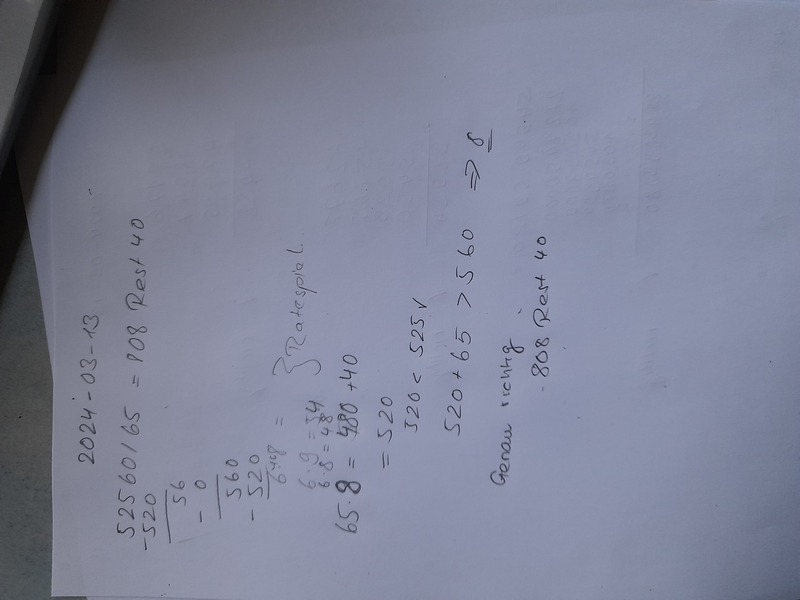 2024-03-13
52560/65 = 808 Rest 40
-520
56
- 0
560
- 520
6·9 = 54
6·8 = 48
} Ratespiel.
65·8 = 480+40
= 520
520 < 525 √
520 + 65 > 560 ⇒ 8
Genau richtig
808 Rest 40